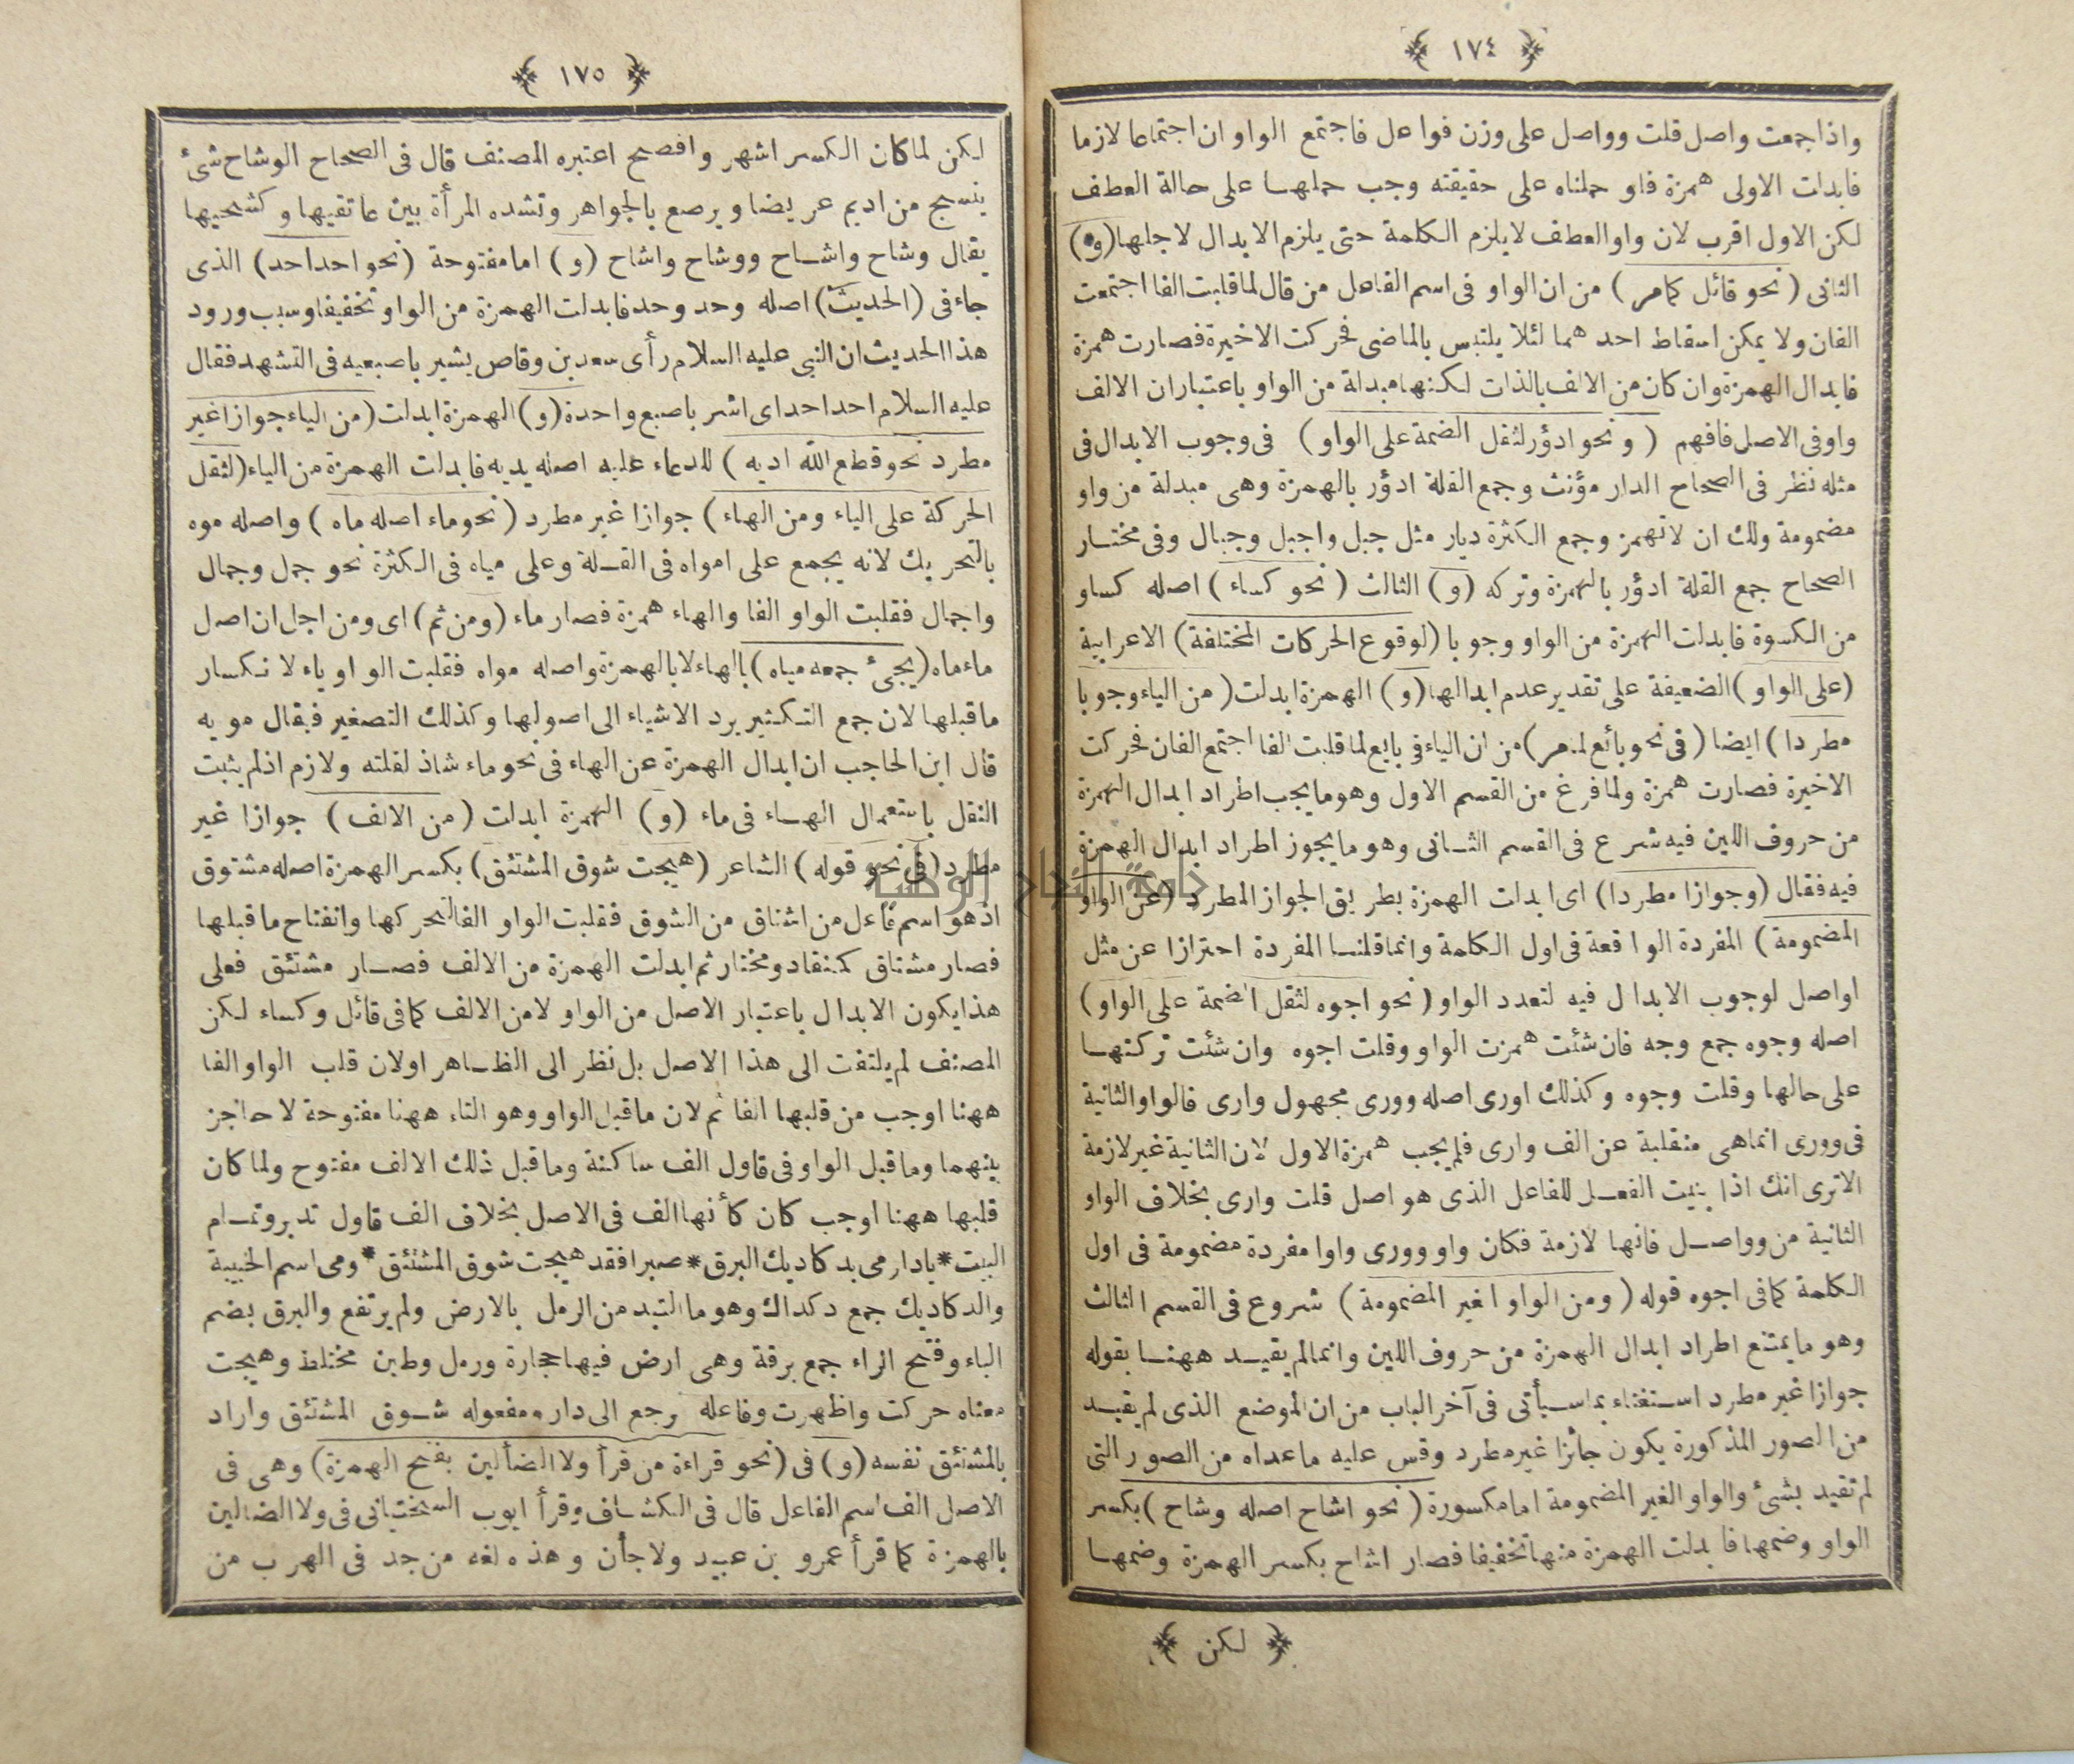 ﴿ ١٧٤ ﴾
واذا جمعت واصل قلت وواصل على وزن فواعل فاجتمع الواو ان اجتماعا لازما
فابدلت الاولى همزة فلو حملناه على حقيقته وجب حملها على حالة العطف
لكن الاول اقرب لان واو العطف لا يلزم الكلمة حتى يلزم الابدال لاجلها (و)
الثانى (نحو قائل كمامر) من ان الواو فى اسم الفاعل من قال لما قلبت الفا اجتمعت
الفان ولا يمكن اسقاط احد هما لئلا يلتبس بالماضى فحركت الاخيرة فصارت همزة
فابدال الهمزة وان كان من الالف بالذات لكنها مبدلة من الواو باعتباران الالف
واوفى الاصل فافهم (ونحو ادؤر لثقل الضمة على الواو) فى وجوب الابدال فى
مثله نظر فى الصحاح الدار مؤنث وجمع القلة ادؤر بالهمزة وهى مبدلة من واو
مضمومة ولك ان لا تهمز وجمع الكثرة ديار مثل جبل واجبل وجبال وفى مختار
الصحاح جمع القلة ادؤر بالهمزة وتركه (و) الثالث (نحو كساء) اصله كساو
من الكسوة فابدلت الهمزة من الواو وجوبا (لوقوع الحركات المختلفة) الاعرابية
(على الواو) الضعيفة على تقدير عدم ابدالها (و) الهمزة ابدلت (من الياء وجوبا
مطردا) ايضا (فى نحو بائع لمامر) من ان الياء فى بايع لما قلبت الفا اجتمع الفان فحركت
الاخيرة فصارت همزة ولما فرغ من القسم الاول وهو ما يجب اطراد ابدال الهمزة
من حروف اللين فيه شرع فى القسم الثانى وهو ما يجوز اطراد ابدال الهمزة
فيه فقال (وجوازا مطردا) اى ابدلت الهمزة بطريق الجواز المطرد (عن الواو
المضمومة) المفردة الواقعة فى اول الكلمة وانما قلنا المفردة احترازا عن مثل
اواصل لوجوب الابدال فيه لتعدد الواو (نحو اجوه لثقل الضمة على الواو)
اصله وجوه جمع وجه فان شئت همزت الواو وقلت اجوه وان شئت تركتها
على حالها وقلت وجوه وكذلك اورى اصله وورى مجهول وارى فالواو الثانية
فى وورى انما هى منقلبة عن الف وارى فلم يجب همزة الاول لان الثانية غير لازمة
الا ترى انك اذا بنيت الفعل للفاعل الذى هو اصل قلت وارى بخلاف الواو
الثانية من وواصل فانها لازمة فكان واو وورى واوا مفردة مضمومة فى اول
الكلمة كما فى اجوه قوله (ومن الواو الغير المضمومة) شروع فى القسم الثالث
وهو ما يمتنع اطراد ابدال الهمزة من حروف اللين وانما لم يقيد ههنا بقوله
جوازا غير مطرد استغناء بما سيأتى فى آخر الباب من ان الموضع الذى لم يقيد
من الصور المذكورة يكون جائزا غير مطرد وقس عليه ما عداه من الصور التى
لم تقيد بشئ والواو الغير المضمومة اما مكسورة (نحو اشاح اصله وشاح) بكسر
الواو وضمها فابدلت الهمزة منها تخفيفا فصار اشاح بكسر الهمزة وضمها
﴿ لكن ﴾
﴿ ١٧٥ ﴾
لكن لما كان الكسر اشهر وافصح اعتبره المصنف قال فى الصحاح الوشاح شئ
ينسج من اديم عريضا ويرصع بالجواهر وتشده المرأة بين عاتقيها وكشحيها
يقال وشاح واشاح ووشاح واشاح (و) اما مفتوحة (نحو احد احد) الذى
جاء فى (الحديث) اصله وحد وحد فابدلت الهمزة من الواو تخفيفا وسبب ورود
هذا الحديث ان النبى عليه السلام رأى سعد بن وقاص يشير باصبعيه فى التشهد فقال
عليه السلام احد احد اى اشر باصبع واحدة (و) الهمزة ابدلت (من الياء جوازا غير
مطرد نحو قطع الله اديه) للدعاء عليه اصله يديه فابدلت الهمزة من الياء (لثقل
الحركة على الياء ومن الهاء) جوازا غير مطرد (نحو ماء اصله ماه) واصله موه
بالتحريك لانه يجمع على امواه فى القلة وعلى مياه فى الكثرة نحو جمل وجمال
واجمال فقلبت الواو الفا والهاء همزة فصار ماء (ومن ثم) اى ومن اجل ان اصل
ماء ماه (يجئ جمعه مياه) بالهاء لا بالهمزة واصله مواه فقلبت الواو ياء لانكسار
ما قبلها لان جمع التكثير يرد الاشياء الى اصولها وكذلك التصغير فيقال مويه
قال ابن الحاجب ان ابدال الهمزة عن الهاء فى نحو ماء شاذ لقلته ولازم اذ لم يثبت
النقل باستعمال الهاء فى ماء (و) الهمزة ابدلت (من الالف) جوازا غير
مطرد (فى نحو قوله) الشاعر (هيجت شوق المشتئق) بكسر الهمزة اصله مشتوق
اذ هو اسم فاعل من اشتاق من الشوق فقلبت الواو الفا لتحركها وانفتاح ما قبلها
فصار مشتاق كمنقاد ومختار ثم ابدلت الهمزة من الالف فصار مشتئق فعلى
هذا يكون الابدال باعتبار الاصل من الواو لا من الالف كما فى قائل وكساء لكن
المصنف لم يلتفت الى هذا الاصل بل نظر الى الظاهر اولان قلب الواو الفا
ههنا اوجب من قلبها الفا ثم لان ما قبل الواو وهو التاء ههنا مفتوحة لا حاجز
بينهما وما قبل الواو فى قاول الف ساكنة وما قبل ذلك الالف مفتوح ولما كان
قلبها ههنا اوجب كان كأنها الف فى الاصل بخلاف الف قاول تدبر وتمام
البيت * يا دارمى بدكاديك البرق * صبرا فقد هيجت شوق المشتئق * ومى اسم الحبيبة
والدكاديك جمع دكداك وهو ما التبد من الرمل بالارض ولم يرتفع والبرق بضم
الباء وفتح الراء جمع برقة وهى ارض فيها حجارة ورمل وطين مختلط وهيجت
معناه حركت واظهرت وفاعله رجع الى دار ومفعوله شوق المشتئق واراد
بالمشتئق نفسه (و) فى (نحو قراءة من قرأ ولا الضألين بفتح الهمزة) وهى فى
الاصل الف اسم الفاعل قال فى الكشاف وقرأ ايوب السختيانى فى ولا الضالين
بالهمزة كما قرأ عمرو بن عبيد ولا جأن وهذه لغة من جد فى الهرب من